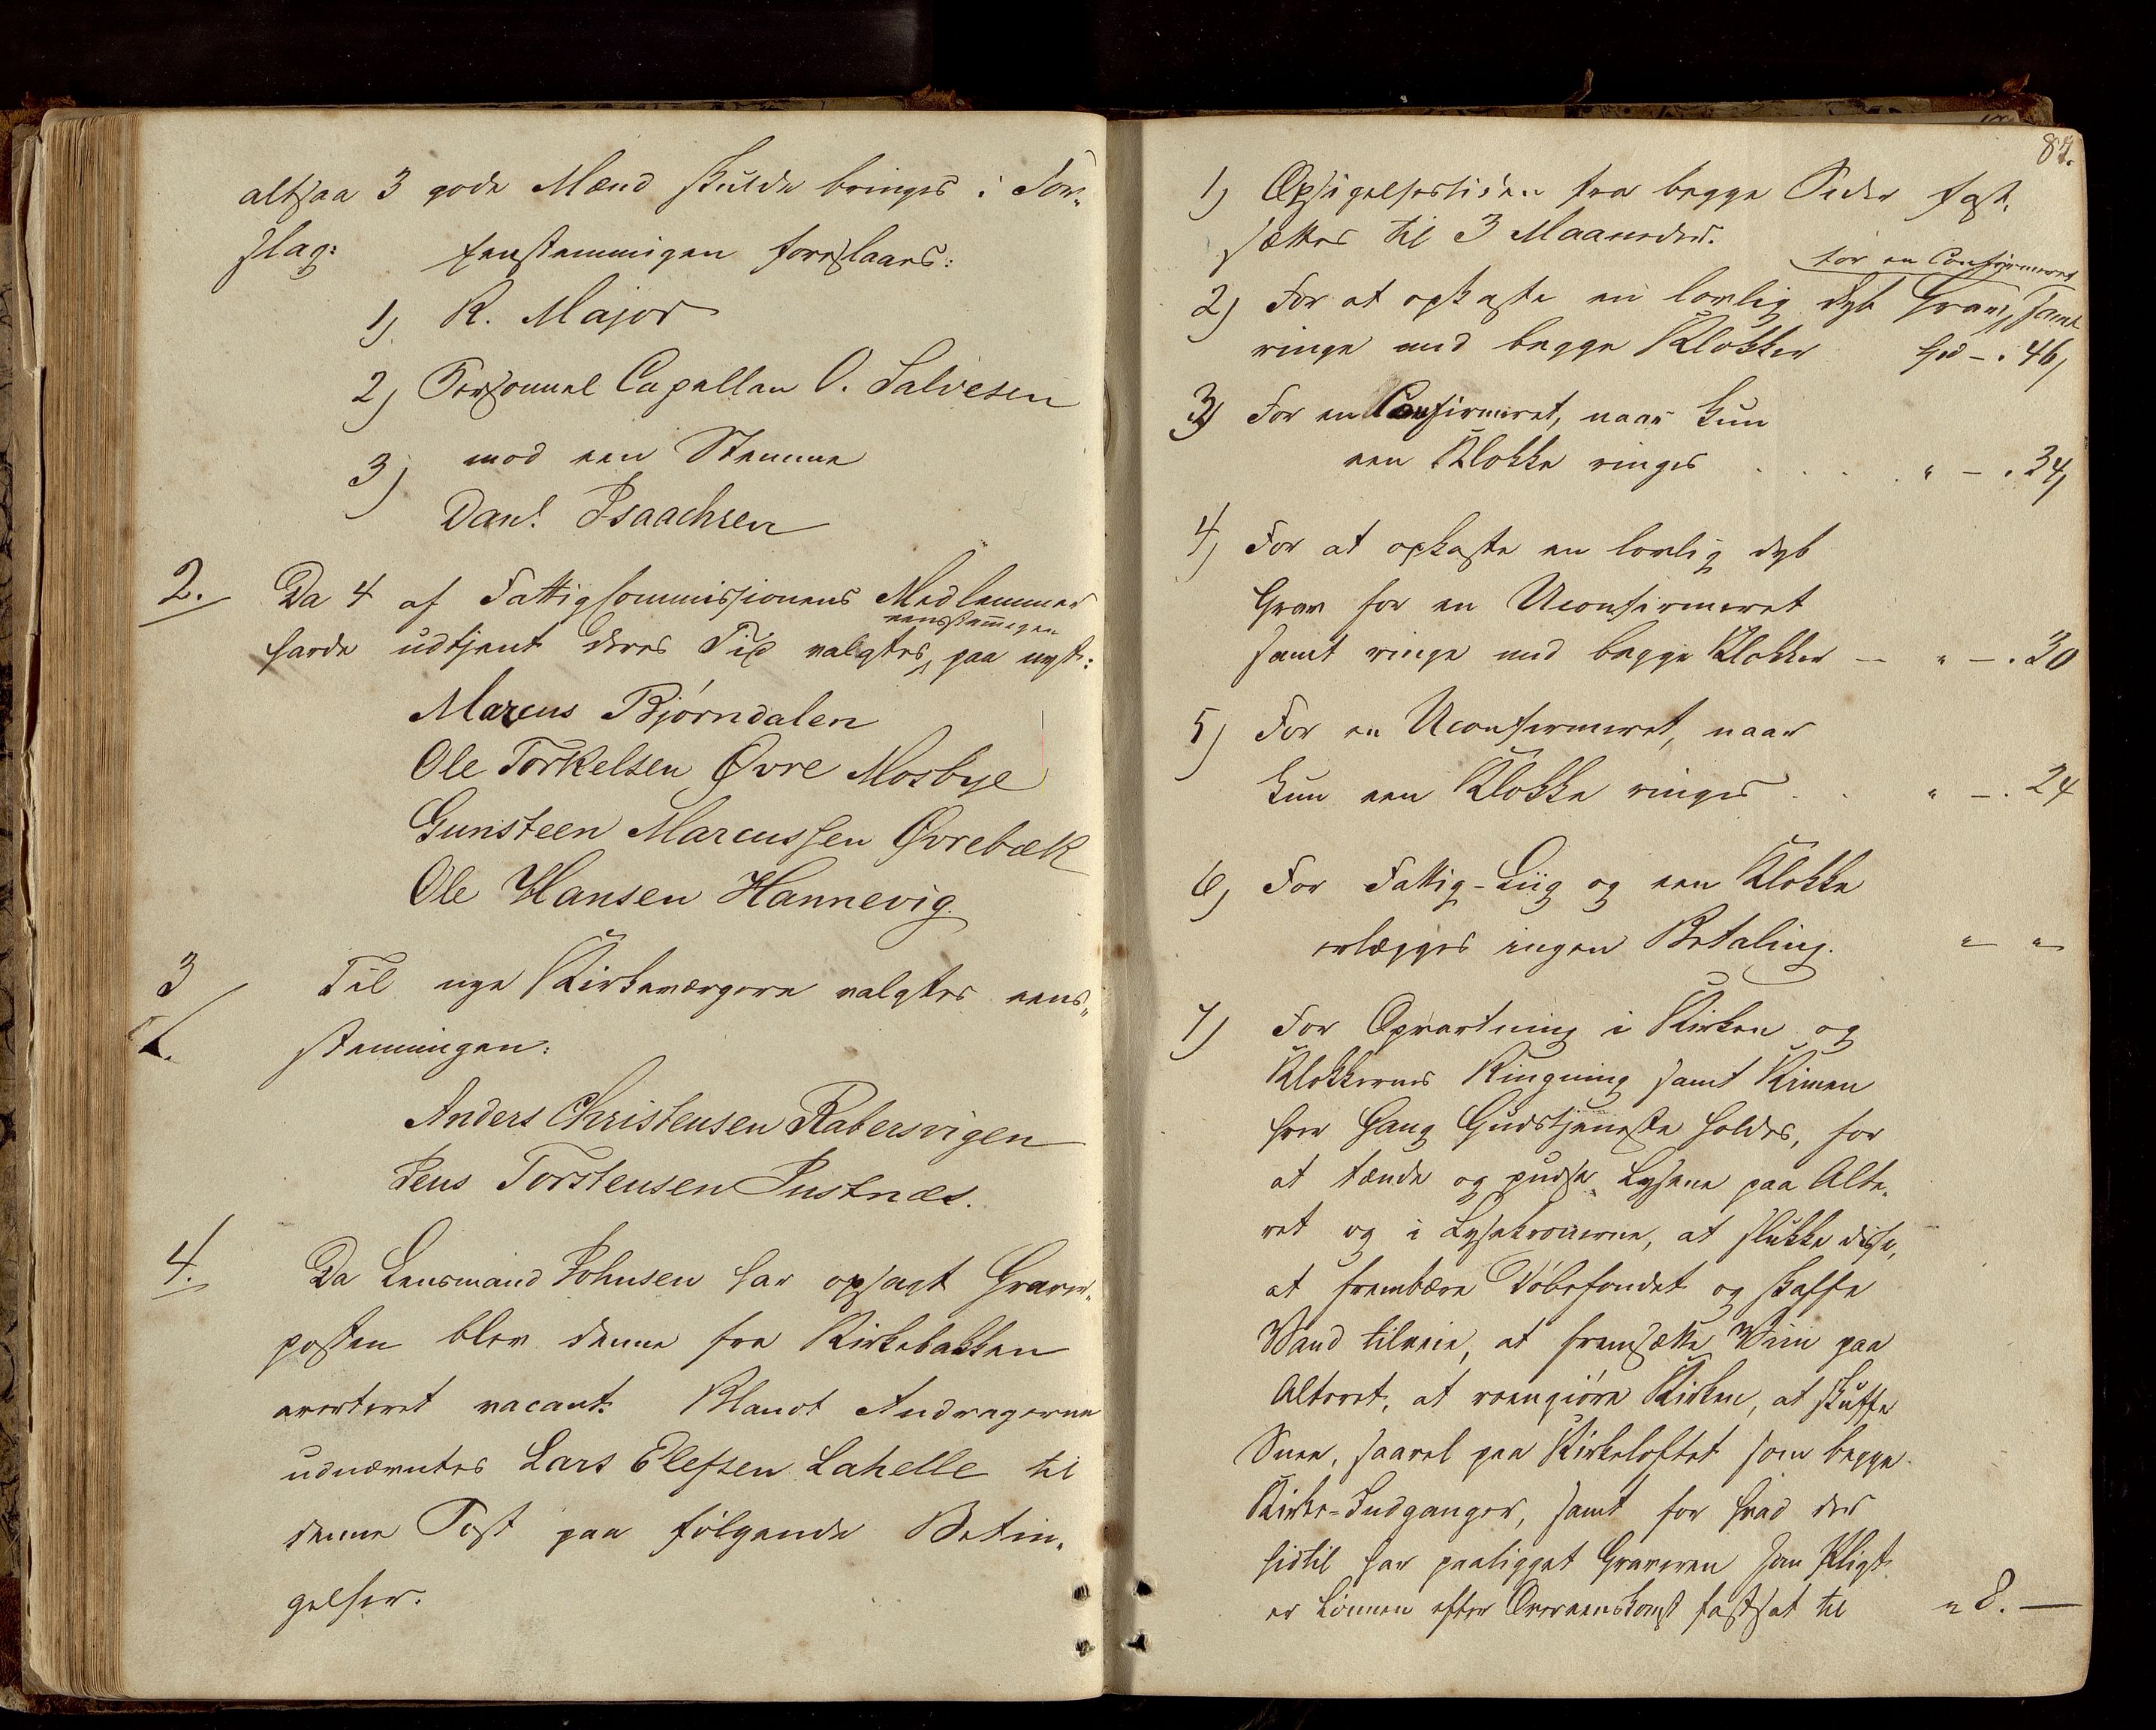 altsaa 3 gode Mænd skulde bringes i For„
slag: Eenstemmigen foreslaaes:
1) K. Major
2) Personnel Capellan O. Salvesen
3) mod een Stemme
Danl. Isaachsen
2. Da 4 af Fattigkommissionens Medlemmer
havde udtjent deres Tid valgtes, eensstem̄igen paa nyt:
Marcus Bjørndalen
Ole Torkelsen Øvre Mosbye
Gunsteen Marcussen Øvrebæk
Ole Hansen Hannevig.
3 Til nye Kirkeværgere valgtes eens„
stemmigen:
Anders Christensen Rabersvigen
Jens Torstensen Justnæs.
4. Da Lensmand Johnsen har opsagt Graver„
posten blev denne fra Kirkebakken
averteret vacant. Blandt Andragerne
udnævntes Lars Elefsen Lahelle til
denne Post paa følgende Betin„
gelser.
87.
1) Opsigelsestiden fra begge Sider fast„
sættes til 3 Maaneder.
for en Confirmeret
2) For at opkaste en lovlig dyb Grav, samt
ringe med begge Klokker Spd - . 46,
3) For en Confirmeret, naar kun
een Klokke ringes . . . . " - . 34,
4) For at opkaste en lovlig dyb
Grav for en Uconfirmeret
samt ringe med begge Klokker — " - . 30
5) For en Uconfirmeret, naar
kun een Klokke ringes . . " - . 24
6) For Fattig-Liig og een Klokke
erlægges ingen Betaling. " "
7) For Opvartning i Kirken og
Klokkernes Ringning samt Kimen
hver Gang Gudstjeneste holdes, for
at tænde og pudse Lysene paa Alte„
ret og i Lysekronerne, at slukke disse,
at frembære Døbefondet og skaffe
Vand tilveie, at fremsætte Viin paa
Alteret, at reengjøre Kirken, at skuffe
Snee, saavel paa Kirkeloftet som begge
Kirke-Indganger, samt for hvad der
hidtil har paaligget Graveren som Pligt
er Lønnen efter Overeenskomst fastsat til " 8. —